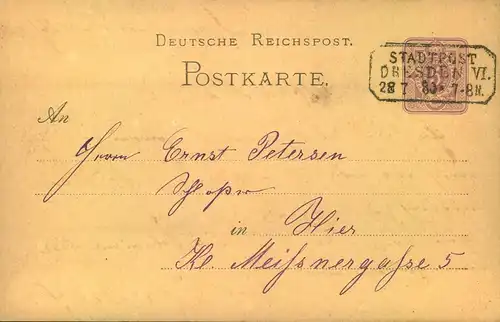 DEUTSCHE REICHSPOST.
POSTKARTE.
STADTPOST
DRESDEN VI.
28 7 83 7-8N.
An
Herrn Ernst Petersen
in Hier
Kl. Meißnergasse 5